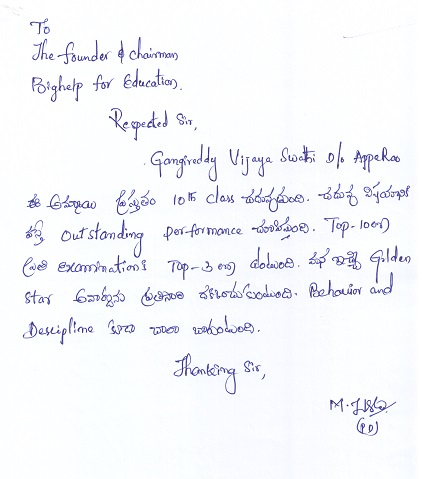 To
The founder & chairman
Bighelp for Education.
Respected Sir,
Gangireddy Vijaya Swathi D/o AppaRao
ఈ అమ్మాయి ప్రస్తుతం 10th class చదువుచుంది. చదువు విషయానికి
వస్తే outstanding performance చూపిస్తుంది. Top-10లో
ప్రతి examinationకి Top-3 లో ఉంటుంది. మన ఇచ్చే Golden
Star అవార్డును ప్రతిసారి దక్కించుకుంటుంది. Behavior and
Descipline కూడా చాలా బాగుంటుంది.
Thanking Sir,
(PD)